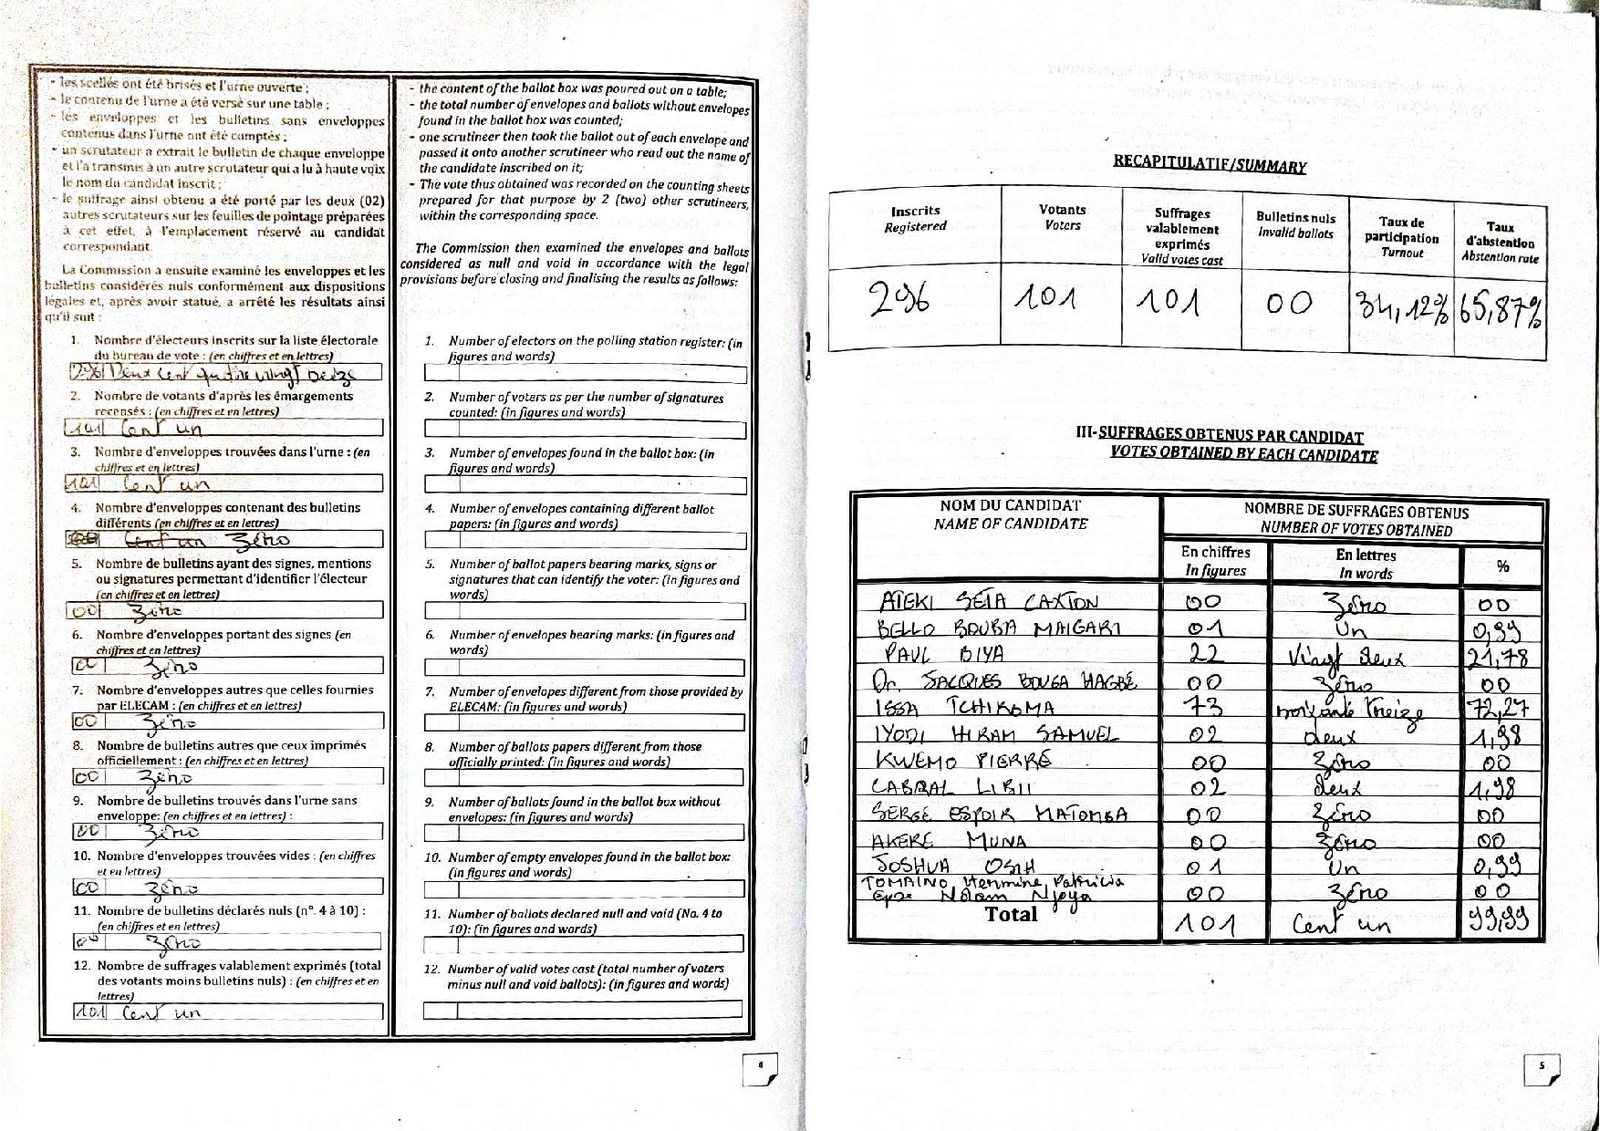 - les scellés ont été brisés et l'urne ouverte ;
- le contenu de l'urne a été versé sur une table ;
- les enveloppes et les bulletins sans enveloppes
contenus dans l'urne ont été comptés ;
- un scrutateur a extrait le bulletin de chaque enveloppe
et l'a transmis à un autre scrutateur qui a lu à haute voix
le nom du candidat inscrit ;
- le suffrage ainsi obtenu a été porté par les deux (02)
autres scrutateurs sur les feuilles de pointage préparées
à cet effet, à l'emplacement réservé au candidat
correspondant.
La Commission a ensuite examiné les enveloppes et les
bulletins considérés nuls conformément aux dispositions
légales et, après avoir statué, a arrêté les résultats ainsi
qu'il suit :
1. Nombre d'électeurs inscrits sur la liste électorale
du bureau de vote : (en chiffres et en lettres)
296 Deux cent quatre vingt seize
2. Nombre de votants d'après les émargements
recensés : (en chiffres et en lettres)
101 Cent un
3. Nombre d'enveloppes trouvées dans l'urne : (en
chiffres et en lettres)
101 Cent un
4. Nombre d'enveloppes contenant des bulletins
différents (en chiffres et en lettres)
Cent un Zéro
5. Nombre de bulletins ayant des signes, mentions
ou signatures permettant d'identifier l'électeur
(en chiffres et en lettres)
00 Zéro
6. Nombre d'enveloppes portant des signes (en
chiffres et en lettres)
00 Zéro
7. Nombre d'enveloppes autres que celles fournies
par ELECAM : (en chiffres et en lettres)
00 Zéro
8. Nombre de bulletins autres que ceux imprimés
officiellement : (en chiffres et en lettres)
00 Zéro
9. Nombre de bulletins trouvés dans l'urne sans
enveloppe: (en chiffres et en lettres) :
00 Zéro
10. Nombre d'enveloppes trouvées vides : (en chiffres
et en lettres)
00 Zéro
11. Nombre de bulletins déclarés nuls (n°. 4 à 10) :
(en chiffres et en lettres)
00 Zéro
12. Nombre de suffrages valablement exprimés (total
des votants moins bulletins nuls) : (en chiffres et en
lettres)
101 Cent un
- the content of the ballot box was poured out on a table;
- the total number of envelopes and ballots without envelopes
found in the ballot box was counted;
- one scrutineer then took the ballot out of each envelope and
passed it onto another scrutineer who read out the name of
the candidate inscribed on it;
- The vote thus obtained was recorded on the counting sheets
prepared for that purpose by 2 (two) other scrutineers,
within the corresponding space.
The Commission then examined the envelopes and ballots
considered as null and void in accordance with the legal
provisions before closing and finalising the results as follows:
1. Number of electors on the polling station register: (in
figures and words)
2. Number of voters as per the number of signatures
counted: (in figures and words)
3. Number of envelopes found in the ballot box: (in
figures and words)
4. Number of envelopes containing different ballot
papers: (in figures and words)
5. Number of ballot papers bearing marks, signs or
signatures that can identify the voter: (in figures and
words)
6. Number of envelopes bearing marks: (in figures and
words)
7. Number of envelopes different from those provided by
ELECAM: (in figures and words)
8. Number of ballots papers different from those
officially printed: (in figures and words)
9. Number of ballots found in the ballot box without
envelopes: (in figures and words)
10. Number of empty envelopes found in the ballot box:
(in figures and words)
11. Number of ballots declared null and void (No. 4 to
10): (in figures and words)
12. Number of valid votes cast (total number of voters
minus null and void ballots): (in figures and words)
4
RECAPITULATIF/SUMMARY
Inscrits Registered | Votants Voters | Suffrages valablement exprimés Valid votes cast | Bulletins nuls Invalid ballots | Taux de participation Turnout | Taux d'abstention Abstention rate
296 | 101 | 101 | 00 | 34,12% | 65,87%
III-SUFFRAGES OBTENUS PAR CANDIDAT
VOTES OBTAINED BY EACH CANDIDATE
NOM DU CANDIDAT NAME OF CANDIDATE | NOMBRE DE SUFFRAGES OBTENUS NUMBER OF VOTES OBTAINED
En chiffres In figures | En lettres In words | %
ATEKI SETA CAXTON 00 Zéro 00
BELLO BOUBA MAIGARI 01 Un 0,99
PAUL BIYA 22 Vingt deux 21,78
Dr. JACQUES BOUGA HAGBÉ 00 Zéro 00
ISSA TCHIROMA 73 soixante treize 72,27
IYODI HIRAM SAMUEL 02 deux 1,98
KWEMO PIERRE 00 Zéro 00
CABRAL LIBII 02 deux 1,98
SERGE ESPOIR MATOMBA 00 Zéro 00
AKERE MUNA 00 Zéro 00
JOSHUA OSIH 01 Un 0,99
TOMAINO Hermine Patricia
Epse Ndam Njoya 00 Zéro 00
Total 101 Cent un 99,99
5